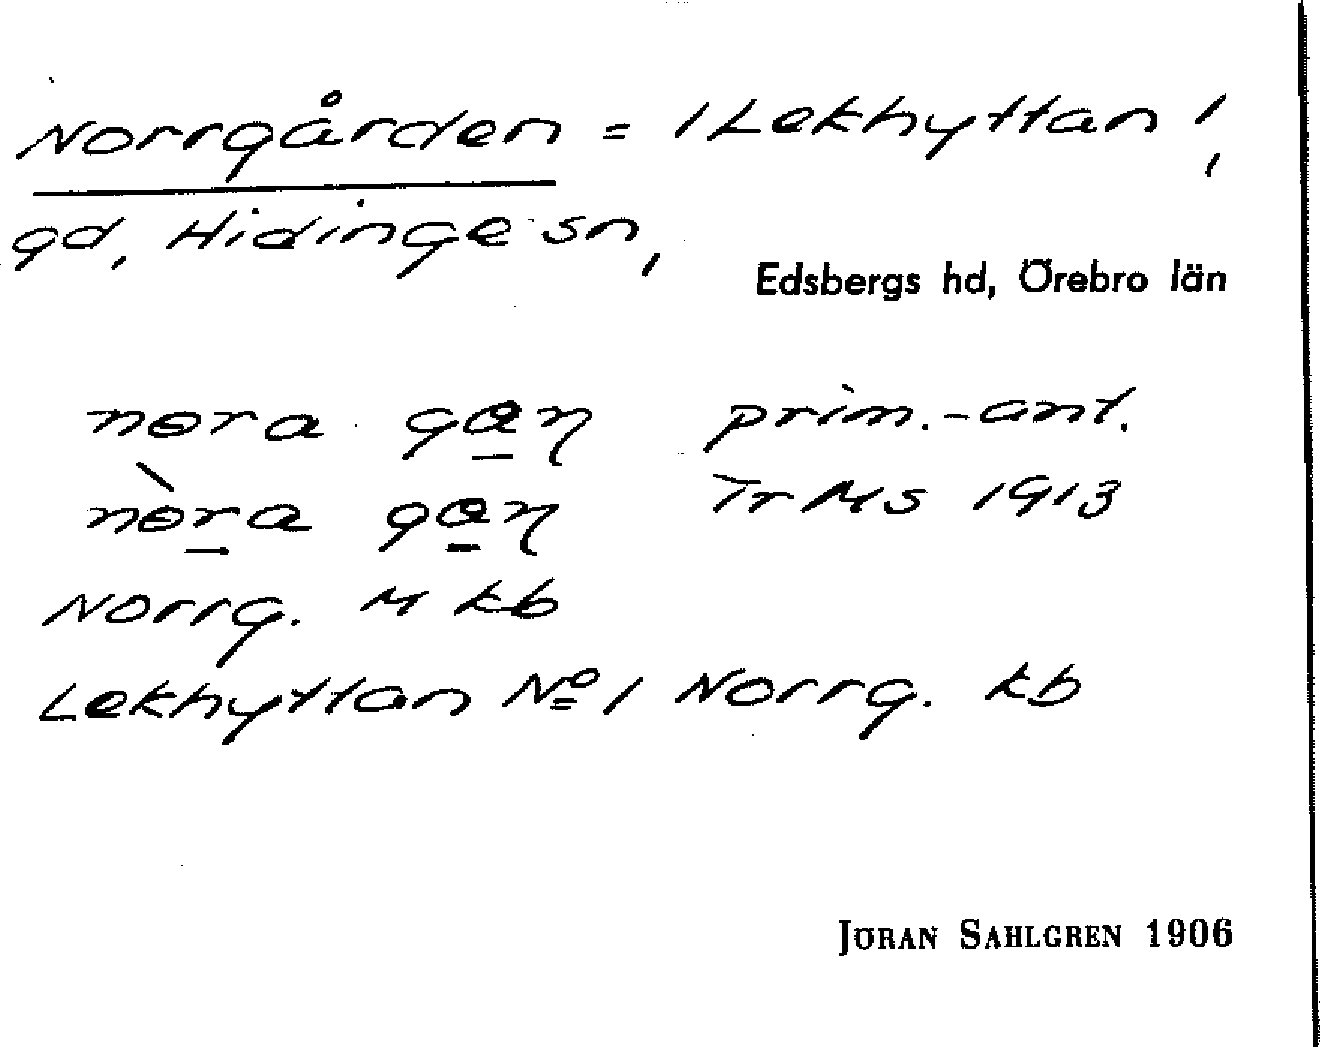 Norrgården = / Lekhyttan /,
gd, Hidinge sn,
Edsbergs hd, Örebro län
nɵra ga̲ꞃ prim.-ant.
nɵ̀r̲a ga̲ꞃ Tr Ms 1913
Norrg. M kb
Lekhyttan № 1 Norrg. kb
JÖRAN SAHLGREN 1906